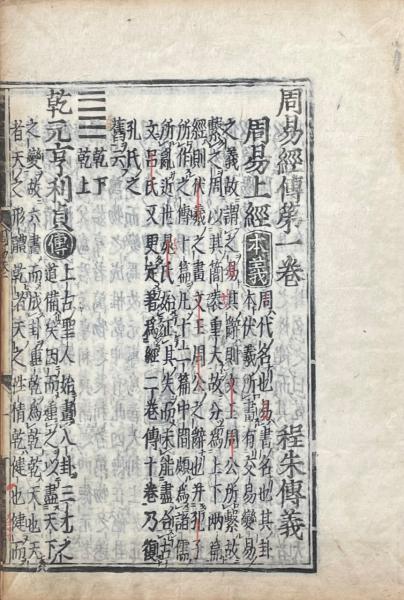 周易經傳第一卷
程朱傳義
周易上經
本義
周代名也易書名也其卦
本伏羲所畫有交易變易
之義故謂之易其辭則文王周公所繫故
繫之周以其簡袠重大故分爲上下兩篇
經則伏羲之畫文王周公之辭也并孔子
所作之傳十篇凡十二篇中間頗爲諸儒
所亂近世晁氏始正其失而未能盡合古
文呂氏又更定著爲經二卷傳十卷乃復
孔氏之
舊云
乾下
乾上
乾元亨利貞
傳
上古聖人始畫八卦三才之
道備矣因而重之以盡天下
之變故六畫而成卦重乾爲乾乾天也天
者天之形體乾者天之性情乾健也健而